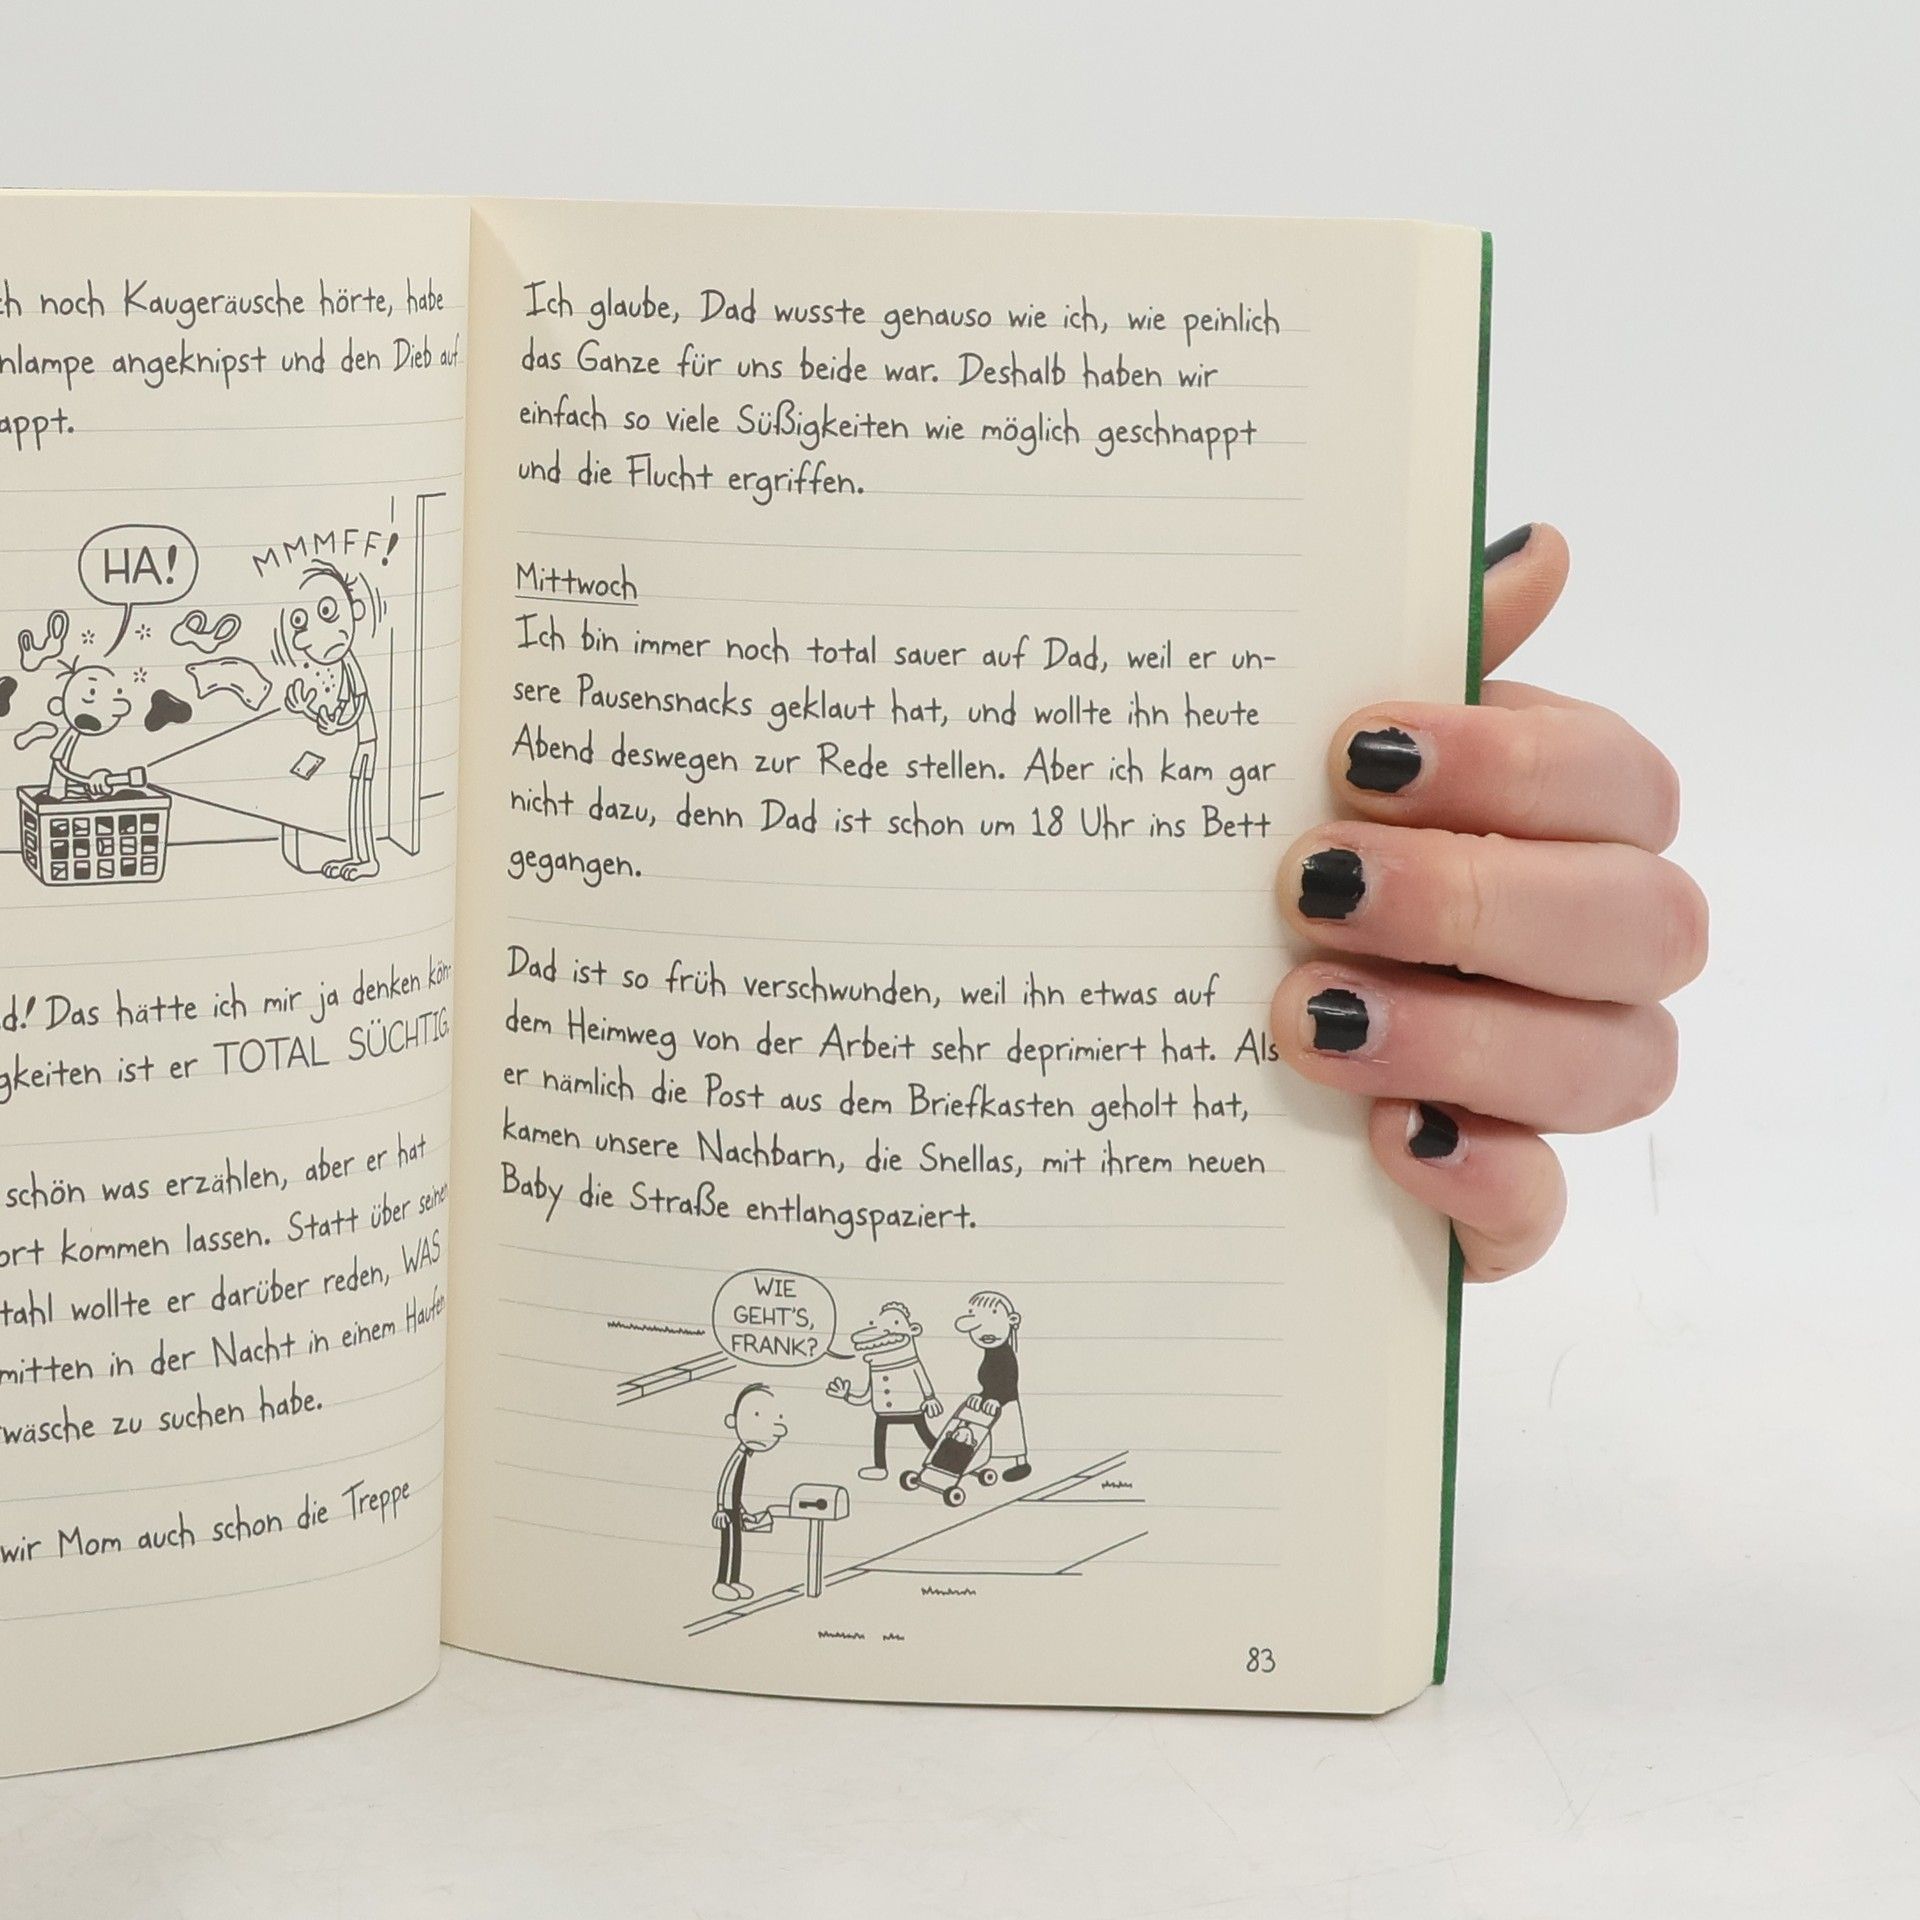 noch Kaugeräusche hörte, habe
angeknipst und den Dieb auf
HA!
MMMFF!
Das hätte ich mir ja denken kön-
ist er TOTAL SÜCHTIG.
schön was erzählen, aber er hat
kommen lassen. Statt über seinen
wollte er darüber reden, WAS
mitten in der Nacht in einem Haufen
zu suchen habe.
wir Mom auch schon die Treppe
Ich glaube, Dad wusste genauso wie ich, wie peinlich
das Ganze für uns beide war. Deshalb haben wir
einfach so viele Süßigkeiten wie möglich geschnappt
und die Flucht ergriffen.
Mittwoch
Ich bin immer noch total sauer auf Dad, weil er un-
sere Pausensnacks geklaut hat, und wollte ihn heute
Abend deswegen zur Rede stellen. Aber ich kam gar
nicht dazu, denn Dad ist schon um 18 Uhr ins Bett
gegangen.
Dad ist so früh verschwunden, weil ihn etwas auf
dem Heimweg von der Arbeit sehr deprimiert hat. Als
er nämlich die Post aus dem Briefkasten geholt hat,
kamen unsere Nachbarn, die Snellas, mit ihrem neuen
Baby die Straße entlangspaziert.
WIE
GEHT'S,
FRANK?
83